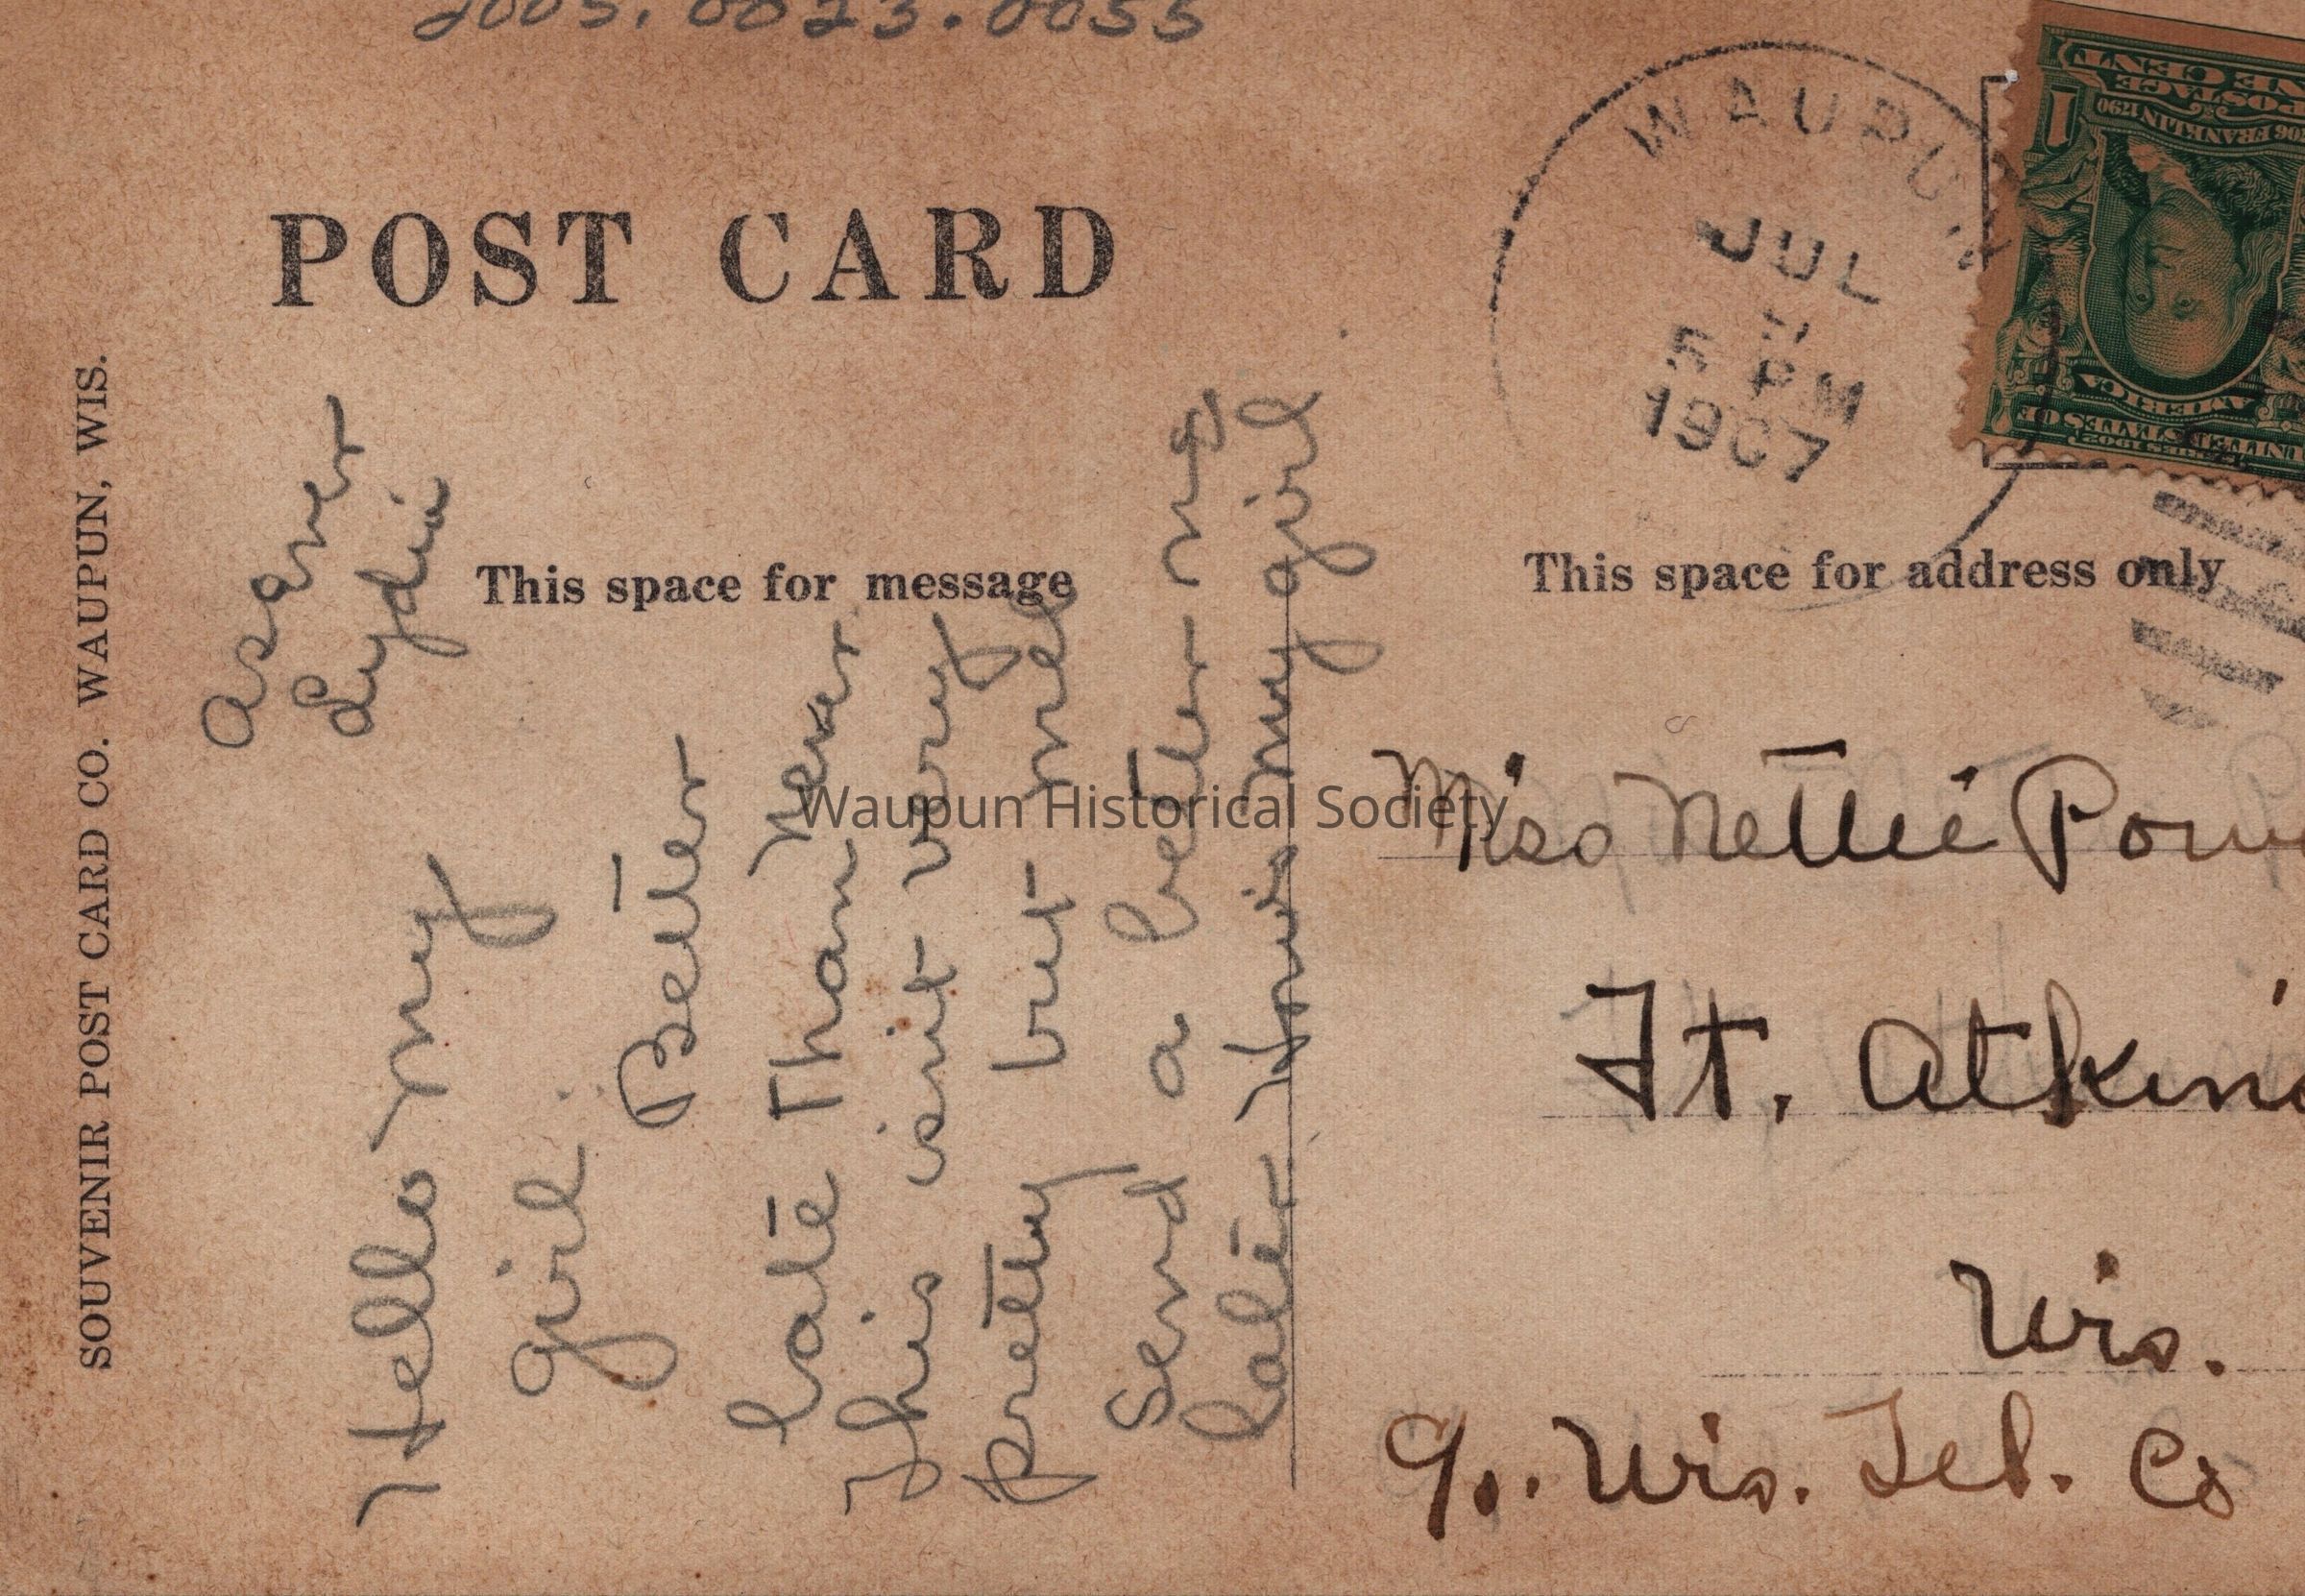 2005.0023.0055
POST CARD
SOUVENIR POST CARD CO. WAUPUN, WIS.
WAUPUN
JUL
5 PM
1907
1
ONE CENT
POSTAGE
FRANKLIN 1790
SERIES 1902
UNITED STATES OF
AMERICA
This space for message
This space for address only
Hello my
girl.
Better
late Than Never
This isnt very
pretty but will
Send a better ng
later
my girl
Lydia
Miss Nettie
Ft.
Wis.
c/o. Wis. Tel. Co
Waupun Historical Society